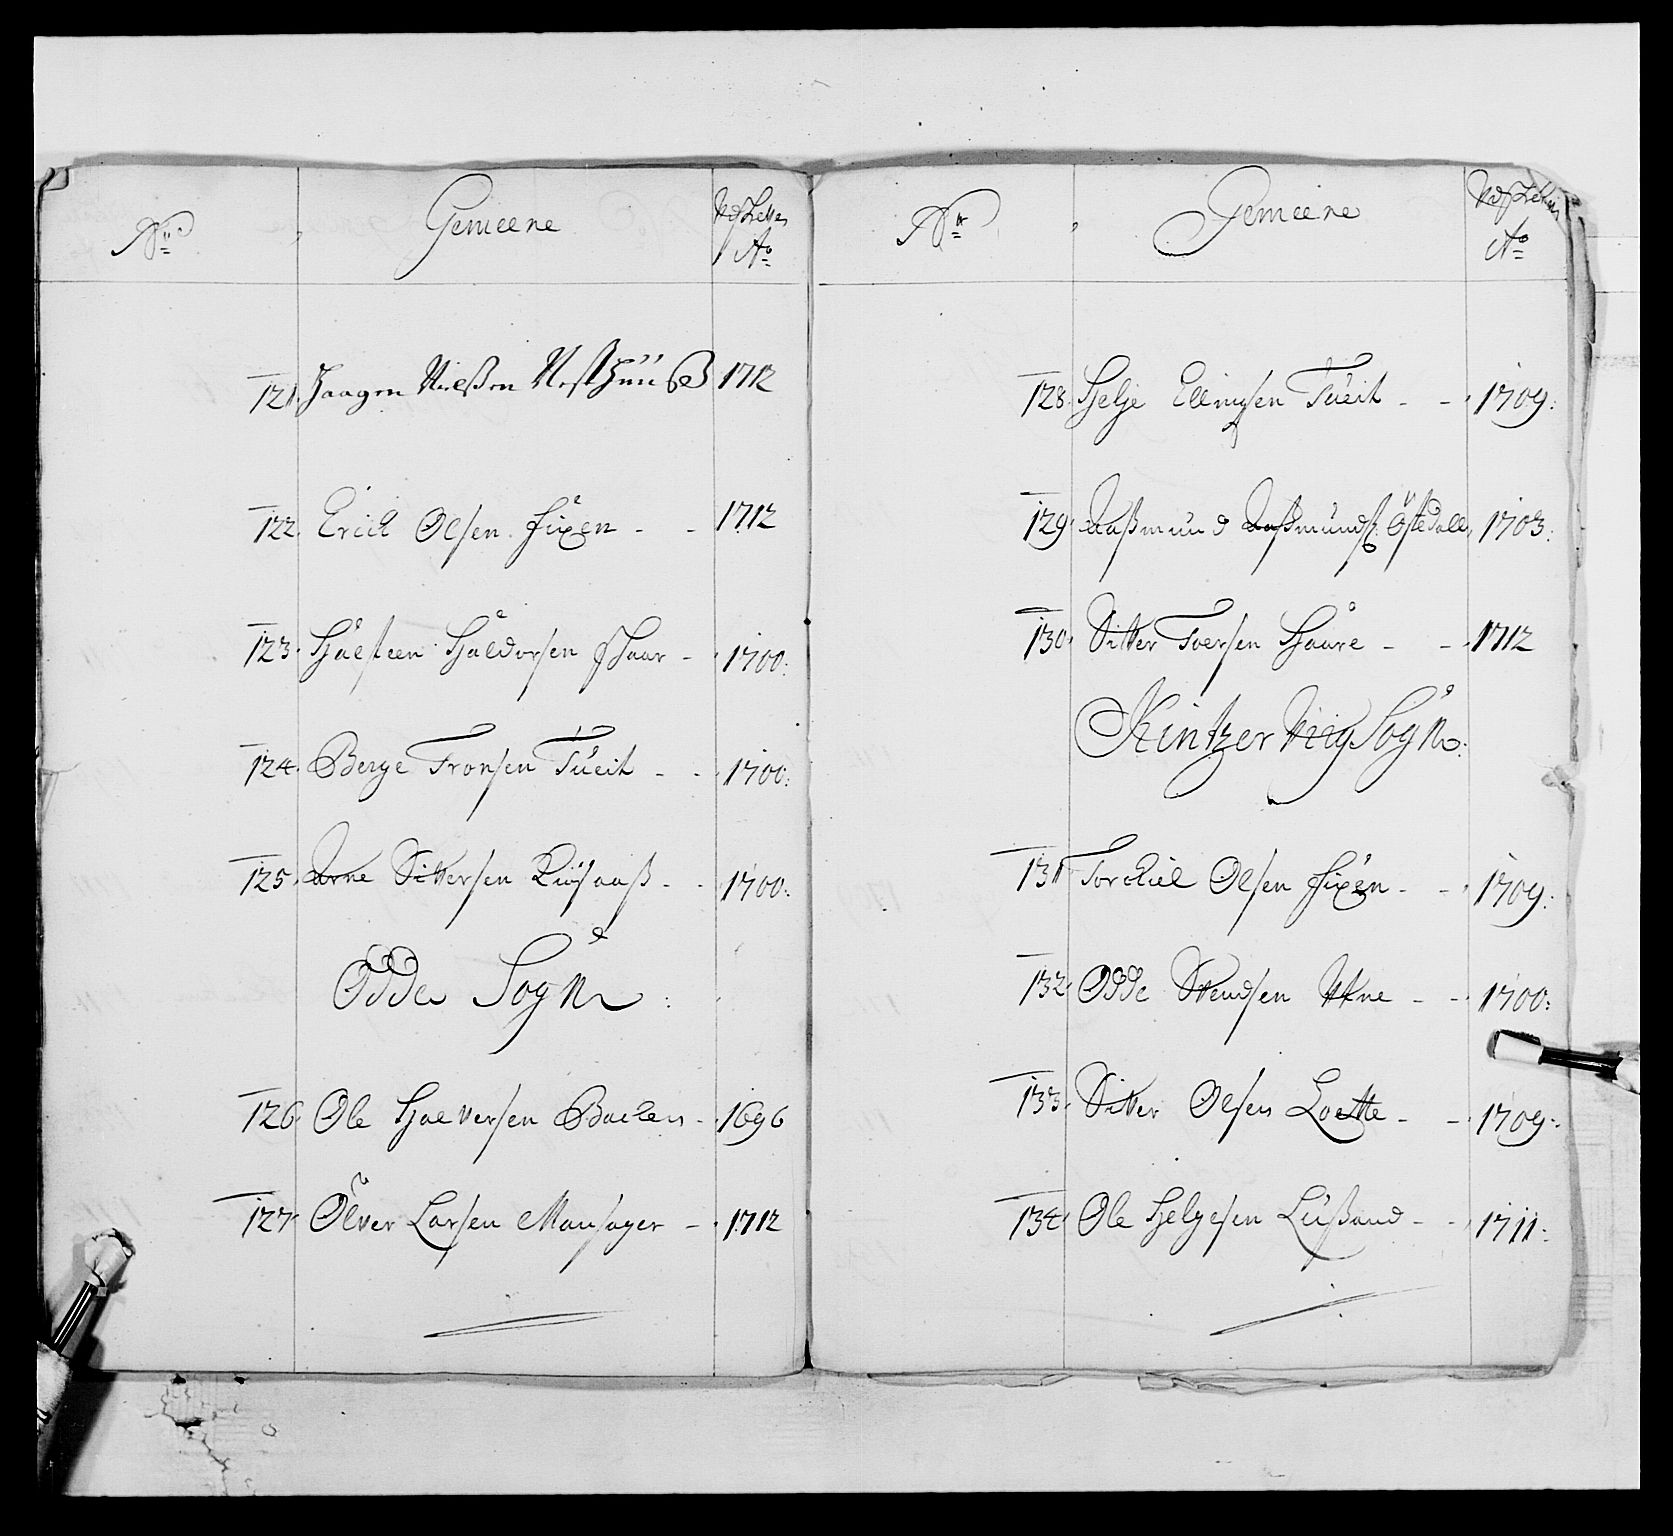 No Gemeene Udsletter Ao
121. Haagen Nielßen Westhuuß 1712
122. Erick Olsen Fixen - - 1712
123. Halsteen Haldorsen Haar - 1700:
124. Berge Tronsen Tueit - - 1700:
125. Arne Sittersen Riisaaß - - 1700:
Odde Sogn:
126. Ole Halversen Backen - 1696
127. Ölver Larsen Mansager - 1712
No Gemeene Ao
128. Helje Ellingsen Tueit - - 1709:
129. Aaßmund Aaßmunds. Östedall 1703:
130. Sitter Toersen Haare - - 1712
Kintzer Viig Sogn:
131. Torckiel Olsen Fixen - - 1709:
132. Odde Svendsen Utne - - 1700:
133. Sitter Olsen Loette - - 1709:
134. Ole Helgesen Lußand - - 1711: